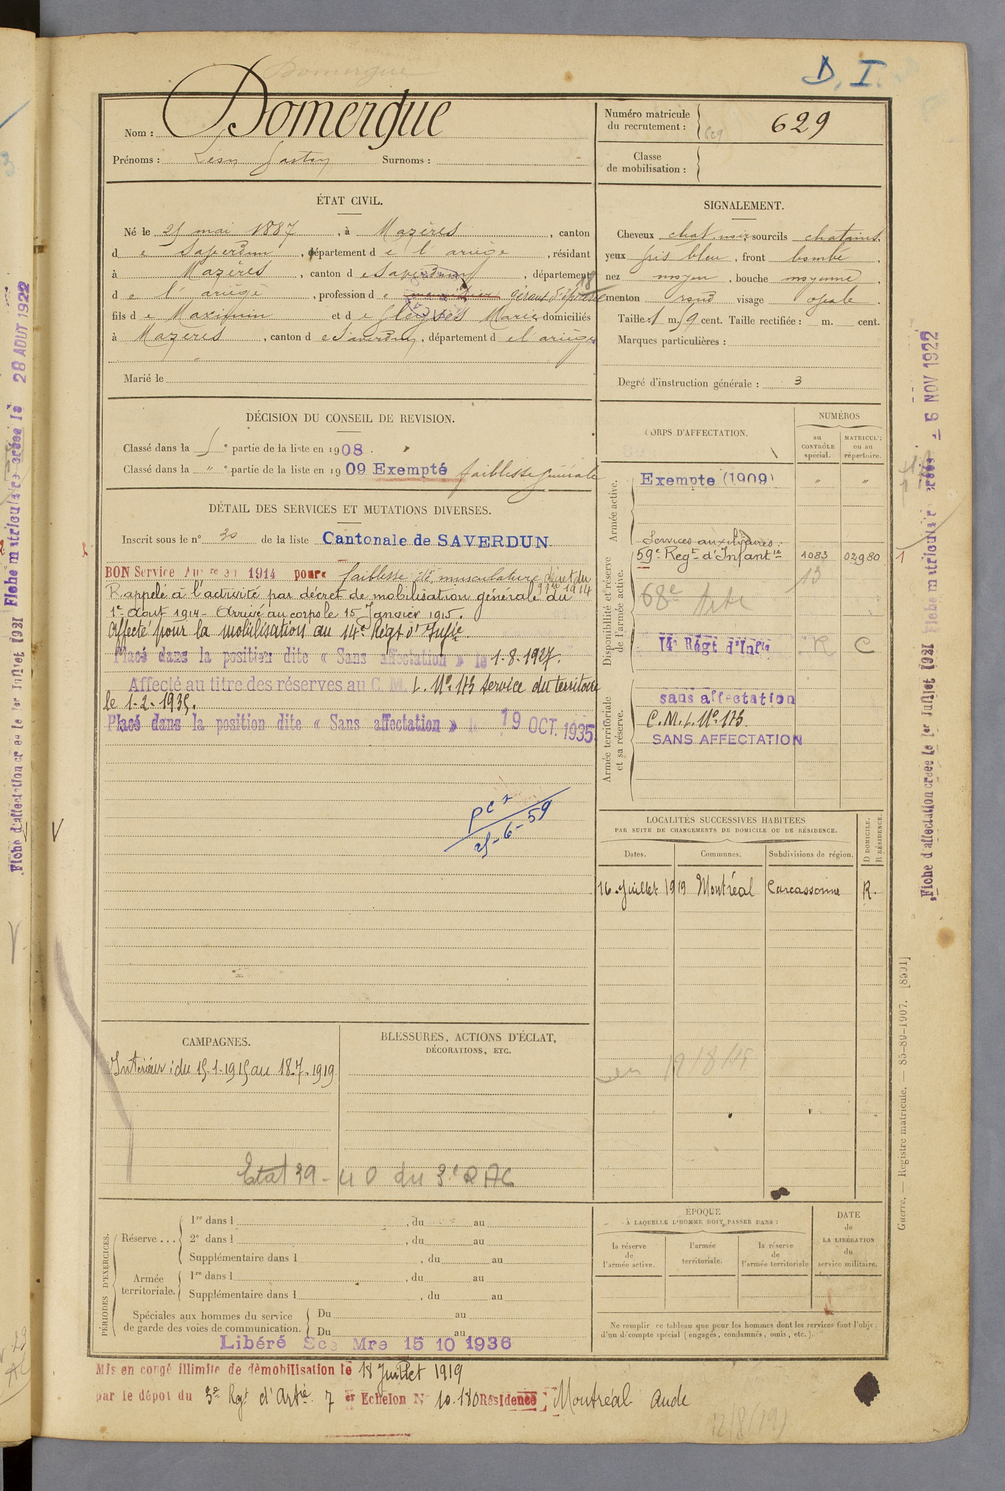 D. I.
Domergue
Nom : Domergue
Prénoms : Léon Gaston Surnoms :
Numéro matricule du recrutement : 629
629
Classe de mobilisation :
ÉTAT CIVIL.
Né le 25 mai 1887, à Mazères, canton
de Saverdun, département de l'ariège, résidant
à Mazères, canton de Saverdun, département
de l'ariège, profession de
fils de Maximin et de Marie domiciliés
à Mazères, canton de Saverdun, département de l'ariège
Marié le
SIGNALEMENT.
Cheveux chat noir sourcils chatains
yeux gris bleu, front bombé
nez moyen, bouche moyenne
menton rond visage ovale
Taille : 1 m. cent. Taille rectifiée : m. cent.
Marques particulières :
Degré d'instruction générale : 3
DÉCISION DU CONSEIL DE REVISION.
Classé dans la partie de la liste en 1908.
Classé dans la " partie de la liste en 1909 Exempté faiblesse générale
DÉTAIL DES SERVICES ET MUTATIONS DIVERSES.
Inscrit sous le n° 30 de la liste Cantonale de SAVERDUN
BON Service Aux re en 1914 pour faiblesse de musculature décret du
Rappelé à l'activité par décret de mobilisation générale du
1er Aout 1914 - Arrivé au corps le 15 Janvier 1915.
Affecté pour la mobilisation au 14e Régt d'Infie
Placé dans la position dite « Sans affectation » le 1-8-1927.
Affecté au titre des réserves au C. M. L. N° 173 service du territoire
le 1-2-1935.
Placé dans la position dite « Sans affectation » le 19 OCT. 1935
pc 2
25-6-59
CORPS D'AFFECTATION.
NUMÉROS
au CONTRÔLE spécial.
MATRICULE ou au répertoire.
Armée active.
Exempté (1909) " "
Disponibilité et réserve de l'armée active.
Services auxiliaires.
59e Regt d'Infantie 1083 02980
68e Artie 13
14e Régt d'Infie R C
Armée territoriale et sa réserve.
sans affectation
C.M.L. N° 173
SANS AFFECTATION
LOCALITÉS SUCCESSIVES HABITÉES
PAR SUITE DE CHANGEMENTS DE DOMICILE OU DE RÉSIDENCE.
Dates. Communes. Subdivisions de région. D DOMICILE. R RÉSIDENCE.
16 Juillet 1919 Montréal Carcassonne R.
CAMPAGNES.
Intérieur : du 15-1-1915 au 18-7-1919
BLESSURES, ACTIONS D'ÉCLAT,
DÉCORATIONS, ETC.
Etat 39-40 du 3e RAC
PÉRIODES D'EXERCICES.
Réserve ...
1re dans l , du au
2e dans l , du au
Supplémentaire dans l , du au
Armée territoriale.
1re dans l , du au
Supplémentaire dans l , du au
Spéciales aux hommes du service de garde des voies de communication.
Du au
Du au
Libéré Sce Mre 15 10 1936
ÉPOQUE
À LAQUELLE L'HOMME DOIT PASSER DANS :
la réserve de l'armée active.
l'armée territoriale.
la réserve de l'armée territoriale
DATE de LA LIBÉRATION du service militaire.
Ne remplir ce tableau que pour les hommes dont les services font l'objet
d'un décompte spécial (engagés, condamnés, omis, etc.).
Mis en congé illimité de démobilisation le 18 Juillet 1919
par le dépot du 3e Regt d'Artie 7 er Echelon N° 10.180 Résidence : Montréal Aude
12/8/(19)
Guerre. — Registre matricule. — 85-80-1907. [8501]
Fiche d'affectation créée le 1er Juillet 1921 Fiche matriculaire créée le 28 AOUT 1922
Fiche d'affectation créée le 1er Juillet 1921 Fiche matriculaire créée le 6 NOV 1922